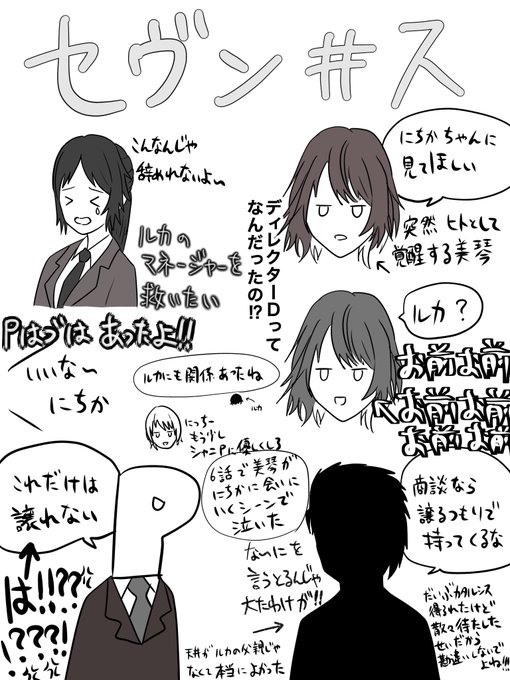 セヴン#ス
こんなんじゃ
辞めれないよ〜
ルカの
マネージャーを
救いたい
ディレクターDって
なんだったの!?
にちかちゃんに
見てほしい
突然ヒトとして
覚醒する美琴
ルカ？
お前お前
お前お前
お前お前
Pはづは あったよ!!
いいな〜
にちか
ルカにも関係あったね
ルカ
にっちー
もう少し
シャニPに優しくしろ
6話で美琴が
にちかに会いに
いくシーンで
泣いた
これだけは
譲れない
は!!??
!???!
ないにを
言うとるんじゃ
大たわけが!!
天井がルカの父親じゃ
なくて本当によかった
商談なら
譲るつもりで
持ってくるな
だいぶカタルシス
得られたけど
散々待たした
せいだから
勘違いしないで
よね!!!